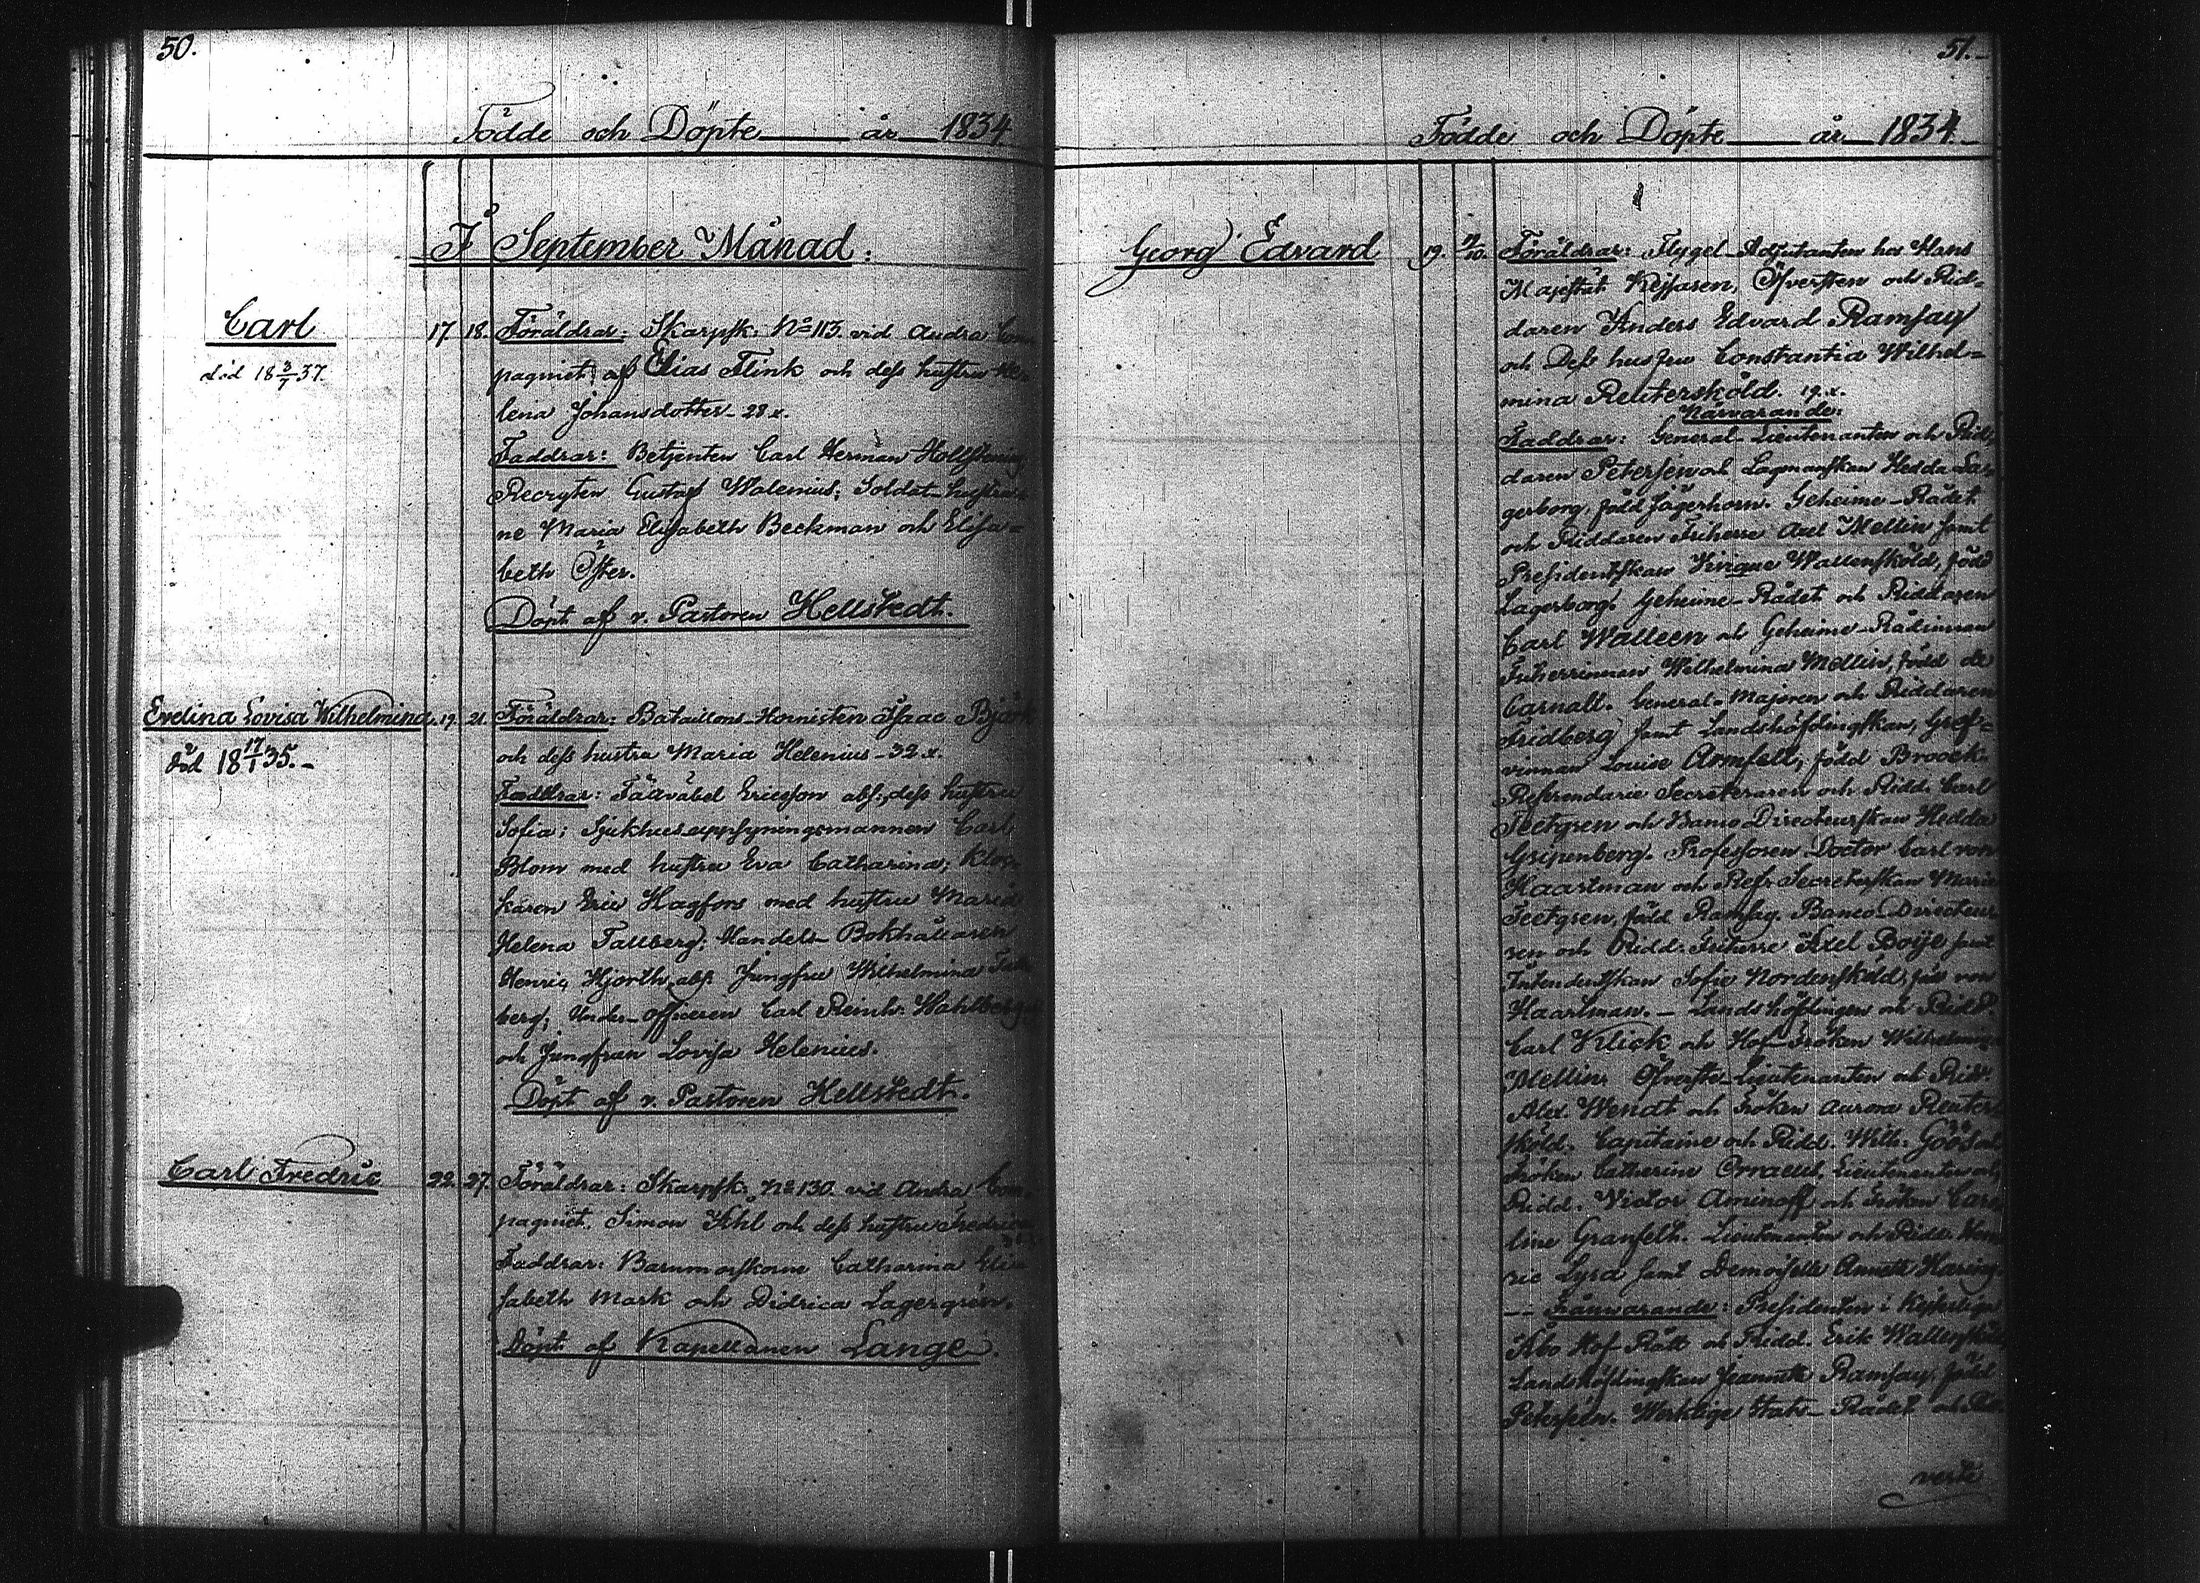 50.
Födde och Döpte år 1834.
I September Månad:
Carl
död 18 3/7 37.
17. 18. Föräldrar: Skarpsk. No 113. vid Andra Com-
pagniet af Elias Flink och dess hustru He-
lena Johansdotter - 28 x.
Faddrar: Betjenten Carl Herman
Recryten Gustaf Walenius; Soldat-hustrur-
ne Maria Elisabeth Beckman och Elisa-
beth Öster.
Döpt af v. Pastoren Hellstedt.
Evelina Lovisa Wilhelmina.
död 18 17/1 35.-
19. 21. Föräldrar: Bataillons-Hornisten Isaac Björk
och dess hustru Maria Helenius - 32 x.
Faddrar: Ericsson abs., dess hustru
Sofia; Sjukhusuppsyningsmannen Carl
Blom med hustru Eva Catharina; Kloc-
karen Eric Hagfors med hustru Maria
Helena Tallberg; Handels-Bokhållaren
Henric Hjorth abs. Jungfru Wilhelmina
berg; Under-officeren Carl Reinh. Wahlberg
och Jungfrun Lovisa Helenius.
Döpt af v. Pastoren Hellstedt.
Carl Fredric
22. 27. Föräldrar: Skarpsk. No 130. vid Andra Com-
pagniet. Simon Ahl och dess hustru Fredrica
Faddrar: Barnmorskorne Catharina Eli-
sabeth Mark och Didrica Lagergrén.
Döpt af Kapellanen Lange.
51.-
Födde och Döpte år 1834.-
Georg Edvard
19. 9/10. Föräldrar: Flygel-Adjutanten hos Hans
Majestät Kejsaren, Öfversten och Rid-
daren Anders Edvard Ramsay
och Dess husfru Constantia Wilhel-
mina Reutersköld. 19. x.
Närvarande:
Faddrar: General-Lieutenanten och Rid-
daren Petersén och Lagmanskan Hedda La-
gerborg, född Jägerhorn. Geheime-Rådet
och Riddaren Friherre Axel Mellin samt
Presidentskan Wallensköld, född
Lagerborg. Geheime-Rådet och Riddaren
Carl Walleen och Geheime-Rådinnan
Friherrinnan Wilhelmina Mellin, född de
Carnall. General-Majoren och Riddaren
Fridberg samt Landshöfdingskan, Gref-
vinnan Louise Armfelt, född Broock.
Referendarie Secreteraren och Ridd. Carl
Teetgren och Banco Directeurskan Hedda
Gripenberg. Professoren Doctor Carl von
Haartman och Ref. Secreterskan Marie
Teetgren, född Ramsay. Banco-Directeu-
ren och Ridd. Friherre Axel Boije samt
Intendentskan Sofie Nordenskiöld, född von
Haartman. - Landshöfdingen och Ridd.
Carl Klick och Hof-Fröken Wilhelmina
Mellin. Öfverste-Lieutenanten och Ridd.
Alex. Wendt och Fröken Aurora Reuter-
sköld. Capitaine och Ridd. Wilh. Göös och
Fröken Catherine Ornaeus. Lieutenanten och
Ridd. Victor Aminoff och Fröken Caro-
line Granfelt. Lieutenanten och Ridd. Hen-
ric Lyra samt Demoiselle Annette Haring.
-- Frånvarande: Presidenten i Kejserliga
Åbo Hof-Rätt och Ridd. Erik Wallensköld,
Landshöfdingskan Jeannette Ramsay, född
Petersén. Werklige Stats-Rådet och
verte